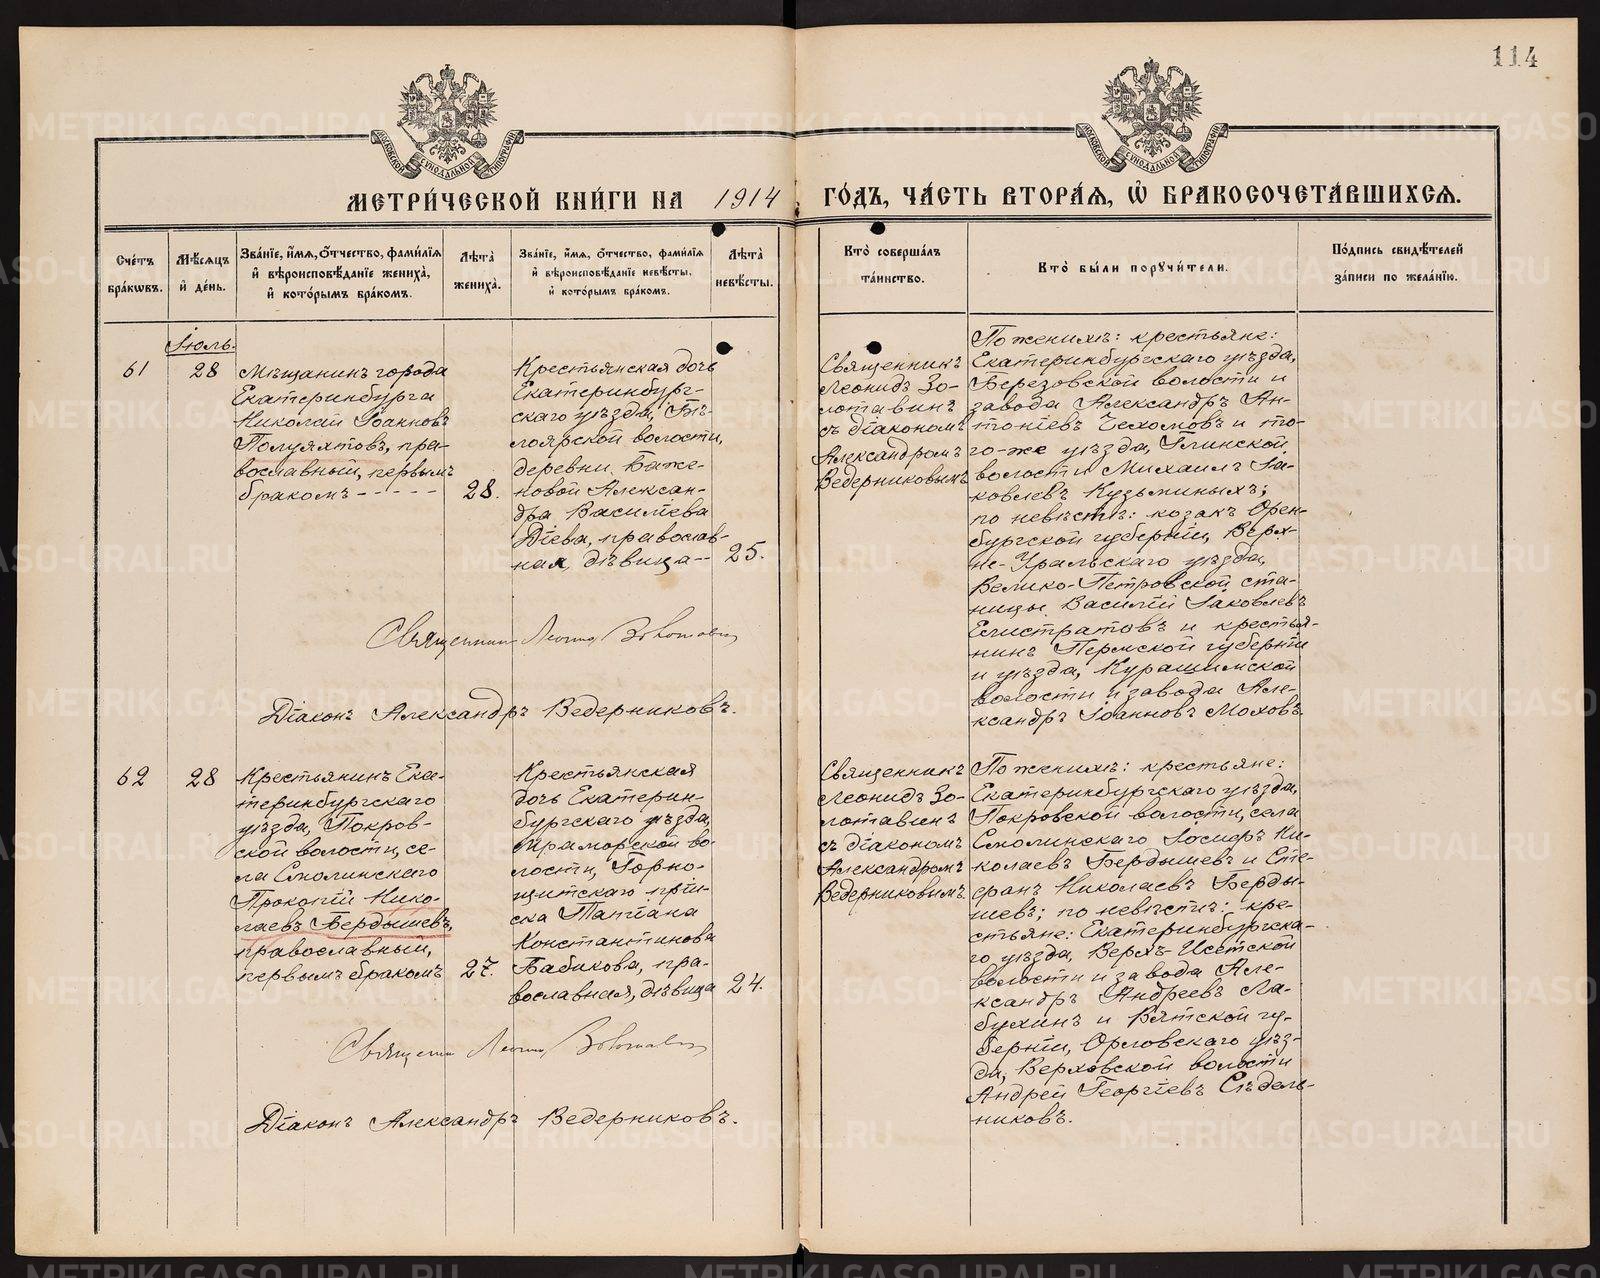 114
МЕТРИ́ЧЕСКОЙ КНИ́ГИ НА 1914 ГО́ДЪ, ЧА́СТЬ ВТОРА́Я, Ѡ БРАКОСОЧЕТА́ВШИХСЯ.
Сче́тъ бра́кѡвъ.
Мѣ́сяцъ и де́нь.
Зва́нїе, и́мя, о́тчество, фами́лїя и вѣроисповѣ́данїе жениха̀, и кото́рымъ бра́комъ.
Лѣ́та жениха̀.
Зва́нїе, и́мя, о́тчество, фами́лїя и вѣроисповѣ́данїе невѣ́сты, и кото́рымъ бра́комъ.
Лѣ́та невѣ́сты.
Кто̀ соверша́лъ та́инство.
Кто̀ бы́ли порꙋчи́тели.
По́дпись свидѣ́телей за́писи по жела́нїю.
Іюль.
61
28
Мѣщанинъ города
Екатеринбурга
Николай Іоанновъ
Полуяхтовъ, пра-
вославный, первымъ
бракомъ - - - - -
28.
Крестьянская дочь
Екатеринбург-
скаго уѣзда, Бѣ-
лоярской волости,
деревни Баже-
новой Алексан-
дра Василіева
Діева, православ-
ная, дѣвица --
25.
Священникъ
Леонидъ Зо-
лотавинъ
съ діакономъ
Александромъ
Ведерниковымъ
По женихѣ: крестьяне:
Екатеринбургскаго уѣзда,
Березовской волости и
завода Александръ Ан-
тоніевъ Чехомовъ и то-
го-же уѣзда, Глинской
волости Михаилъ Іа-
ковлевъ Кузьминыхъ;
по невѣстѣ: козакъ Орен-
бургской губерніи, Верх-
не-Уральскаго уѣзда,
Велико-Петровской ста-
ницы Василій Іаковлевъ
Елистратовъ и крестья-
нинъ Пермской губерніи
и уѣзда, Курашимской
волости и завода Але-
ксандръ Іоанновъ Моховъ.
Священникъ Леонид Золотавин
Діаконъ Александръ Ведерниковъ.
62
28
Крестьянинъ Ека-
теринбургскаго
уѣзда, Покров-
ской волости, се-
ла Смолинскаго
Прокопій Нико-
лаевъ Бердышевъ,
православный,
первымъ бракомъ
27.
Крестьянская
дочь Екатерин-
бургскаго уѣзда,
Мраморской во-
лости, Горно-
щитскаго пріи-
ска Татіана
Константинова
Бабикова, пра-
вославная, дѣвица
24.
Священникъ
Леонидъ Зо-
лотавинъ
съ діакономъ
Александромъ
Ведерниковымъ.
По женихѣ: крестьяне:
Екатеринбургскаго уѣзда,
Покровской волости, села
Смолинскаго Іосифъ Ни-
колаевъ Бердышевъ и Сте-
фанъ Николаевъ Берды-
шевъ; по невѣстѣ: кре-
стьяне: Екатеринбургска-
го уѣзда, Верхъ-Исетской
волости и завода Але-
ксандръ Андреевъ Ла-
бухинъ и Вятской гу-
берніи, Орловскаго уѣз-
да, Верховской волости
Андрей Георгіевъ Сѣдель-
никовъ.
Священник Леонид Золотавин
Діаконъ Александръ Ведерниковъ.